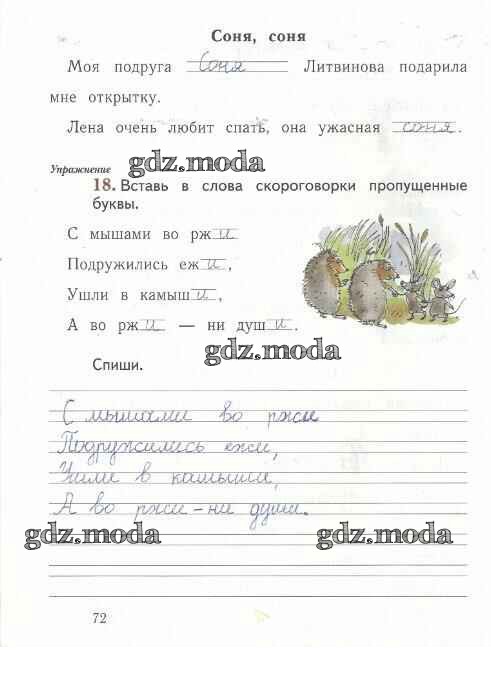 Соня, соня
Моя подруга Соня Литвинова подарила
мне открытку.
Лена очень любит спать, она ужасная соня.
Упражнение
gdz.moda
18. Вставь в слова скороговорки пропущенные
буквы.
С мышами во ржи
Подружились ежи,
Ушли в камыши,
А во ржи — ни души.
gdz.moda
Спиши.
С мышами во ржи
Подружились ежи,
Ушли в камыши,
А во ржи - ни души.
gdz.moda
gdz.moda
72